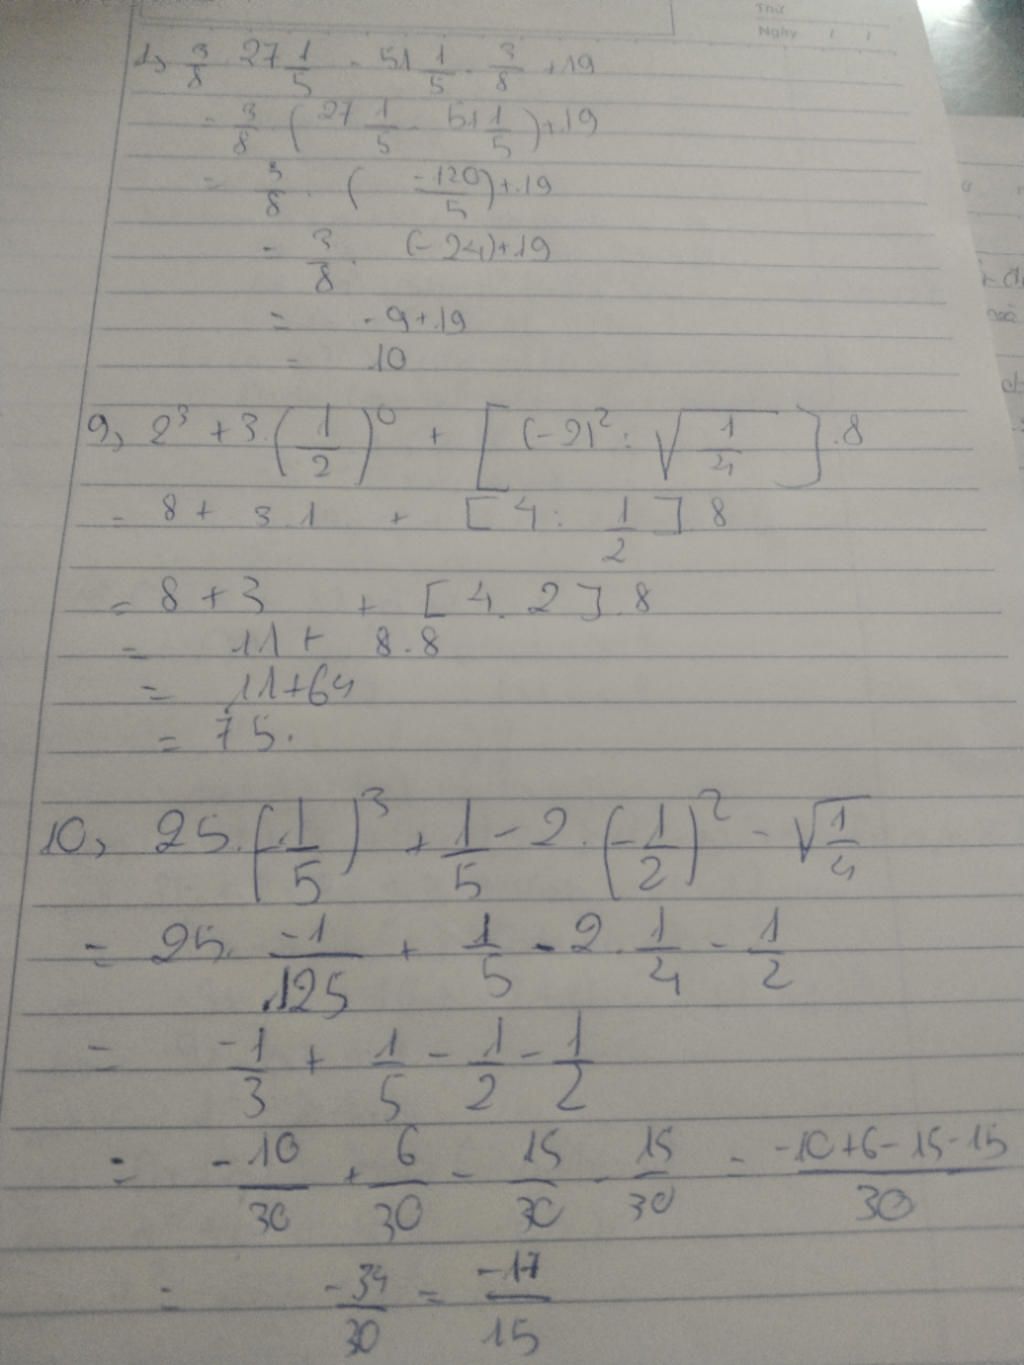 Thứ
Ngày / /
1, 3/8 . 27 1/5 - 51 1/5 . 3/8 + 19
= 3/8 . ( 27 1/5 - 51 1/5 ) + 19
= 3/8 . ( -120/5 ) + 19
= 3/8 . (-24) + 19
= -9 + 19
= 10
9, 2³ + 3. (1/2)⁰ + [ (-2)² : √(1/4) ] . 8
= 8 + 3.1 + [ 4 : 1/2 ] . 8
= 8 + 3 + [ 4 . 2 ] . 8
= 11 + 8.8
= 11 + 64
= 75.
10, 25. (-1/5)³ + 1/5 - 2. (-1/2)² - √(1/4)
= 25. -1/125 + 1/5 - 2. 1/4 - 1/2
= -1/3 + 1/5 - 1/2 - 1/2
= -10/30 + 6/30 - 15/30 - 15/30 = -10+6-15-15/30
= -34/30 = -17/15